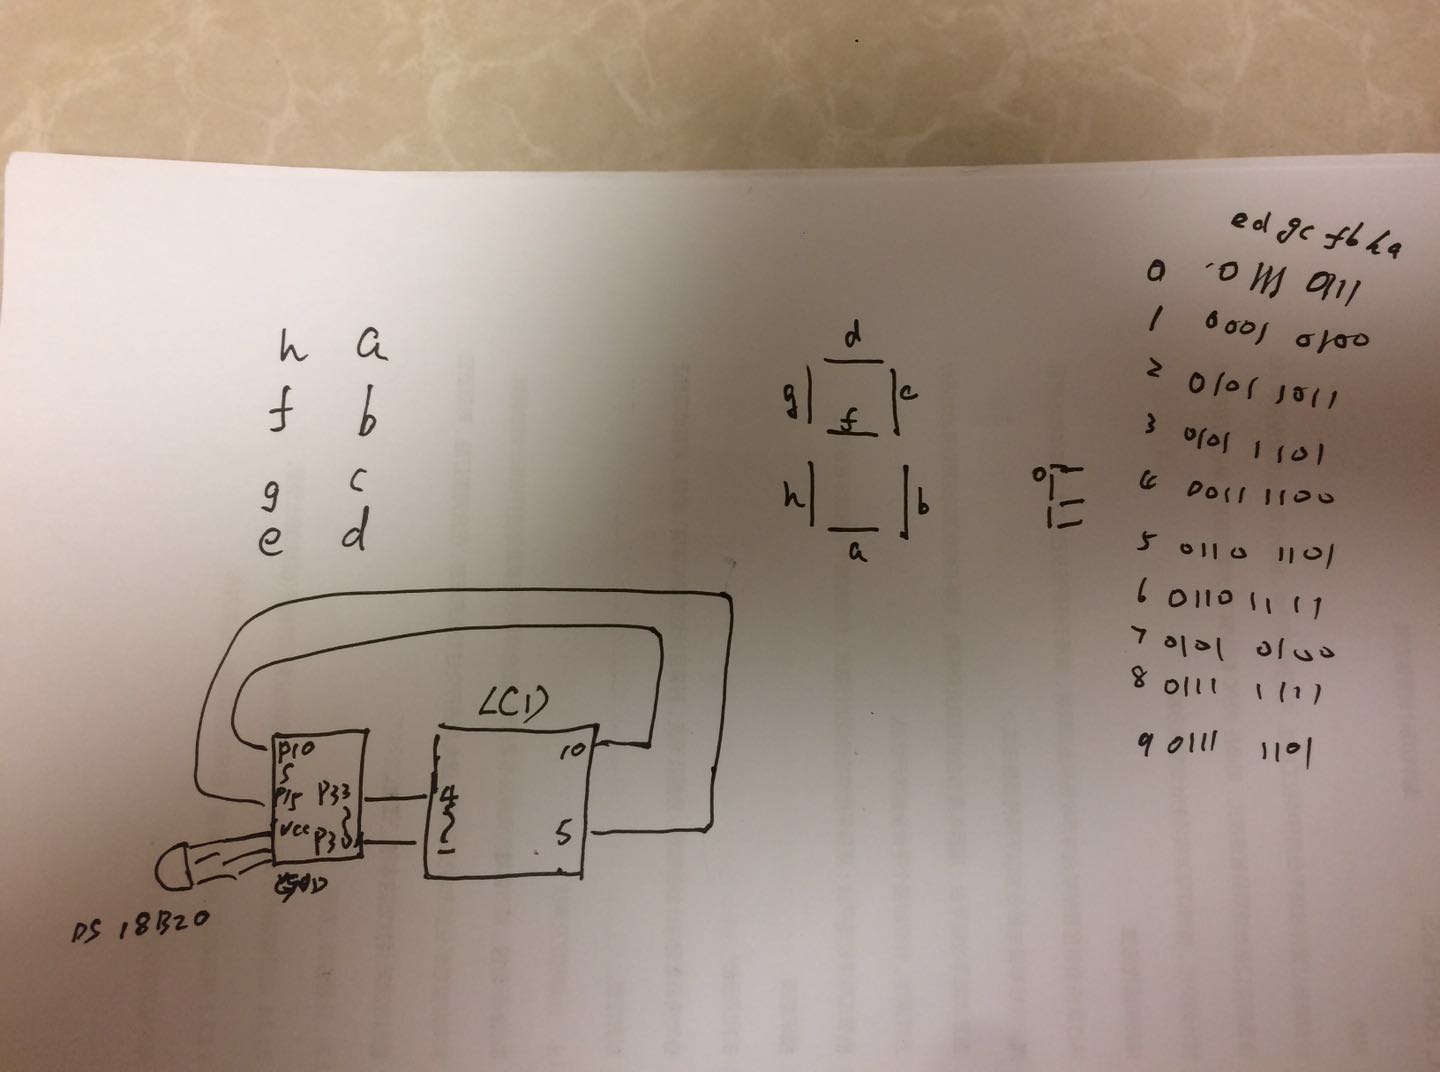 h a
f b
g c
e d
d
g c
f
h b
a
ed gc fb ha
0 0111 0111
1 0001 0100
2 0101 1011
3 0101 1101
4 0011 1100
5 0110 1101
6 0110 1111
7 0101 0100
8 0111 1111
9 0111 1101
LCD
P10 10
P15 P33 4
VCC P30 5
DS 18B20